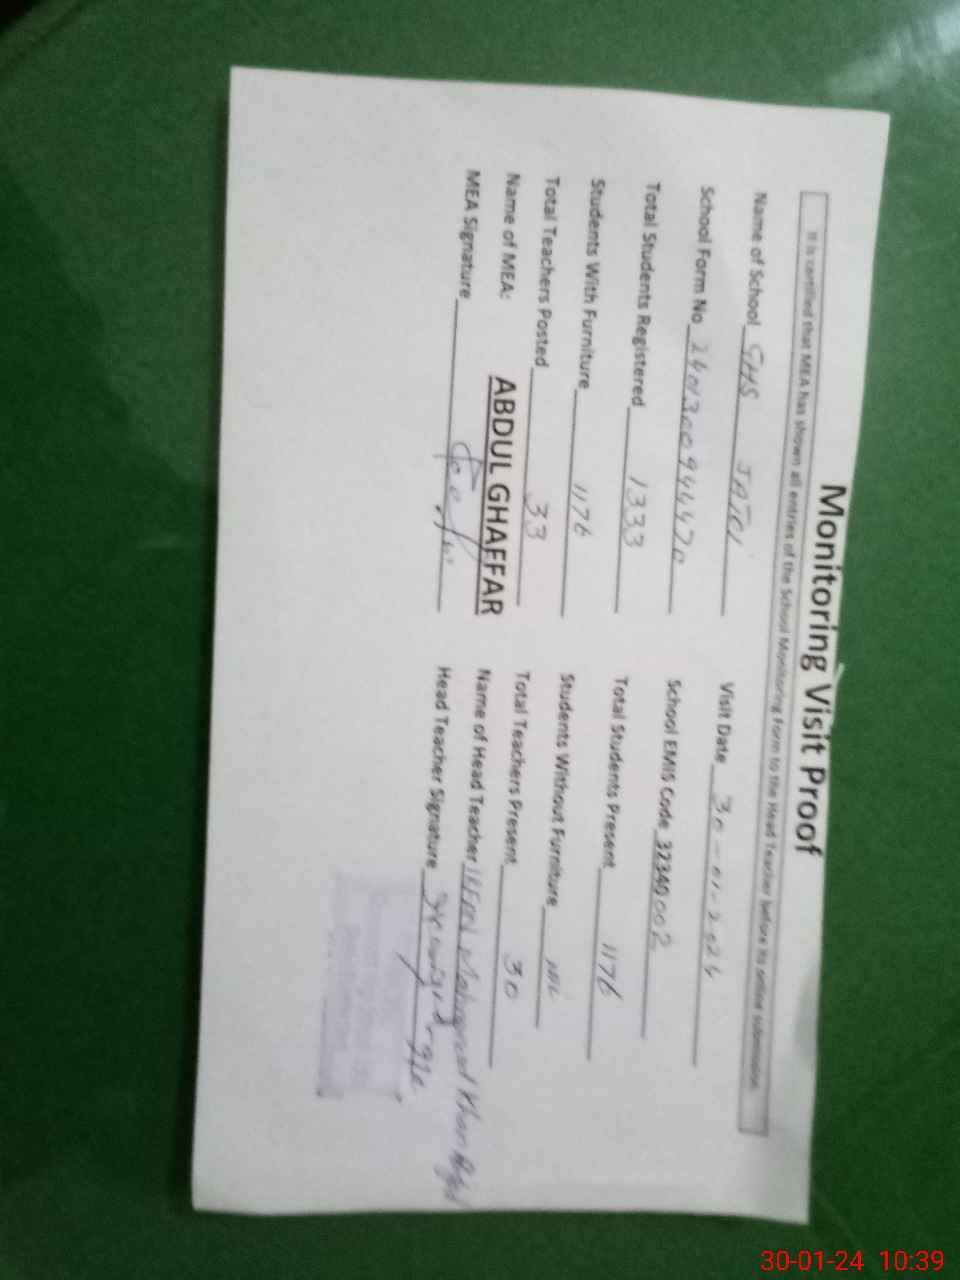 Monitoring Visit Proof
It is certified that MEA has shown all entries of the School Monitoring Form to the Head Teacher before its online submission.
Name of School GHS JATOI Visit Date 30-01-2024
School Form No School EMIS Code 32340002
Total Students Registered 1333 Total Students Present 1176
Students With Furniture 1176 Students Without Furniture NIL
Total Teachers Posted 33 Total Teachers Present 30
Name of MEA: ABDUL GHAFFAR Name of Head Teacher Khan
MEA Signature Head Teacher Signature
30-01-24 10:39